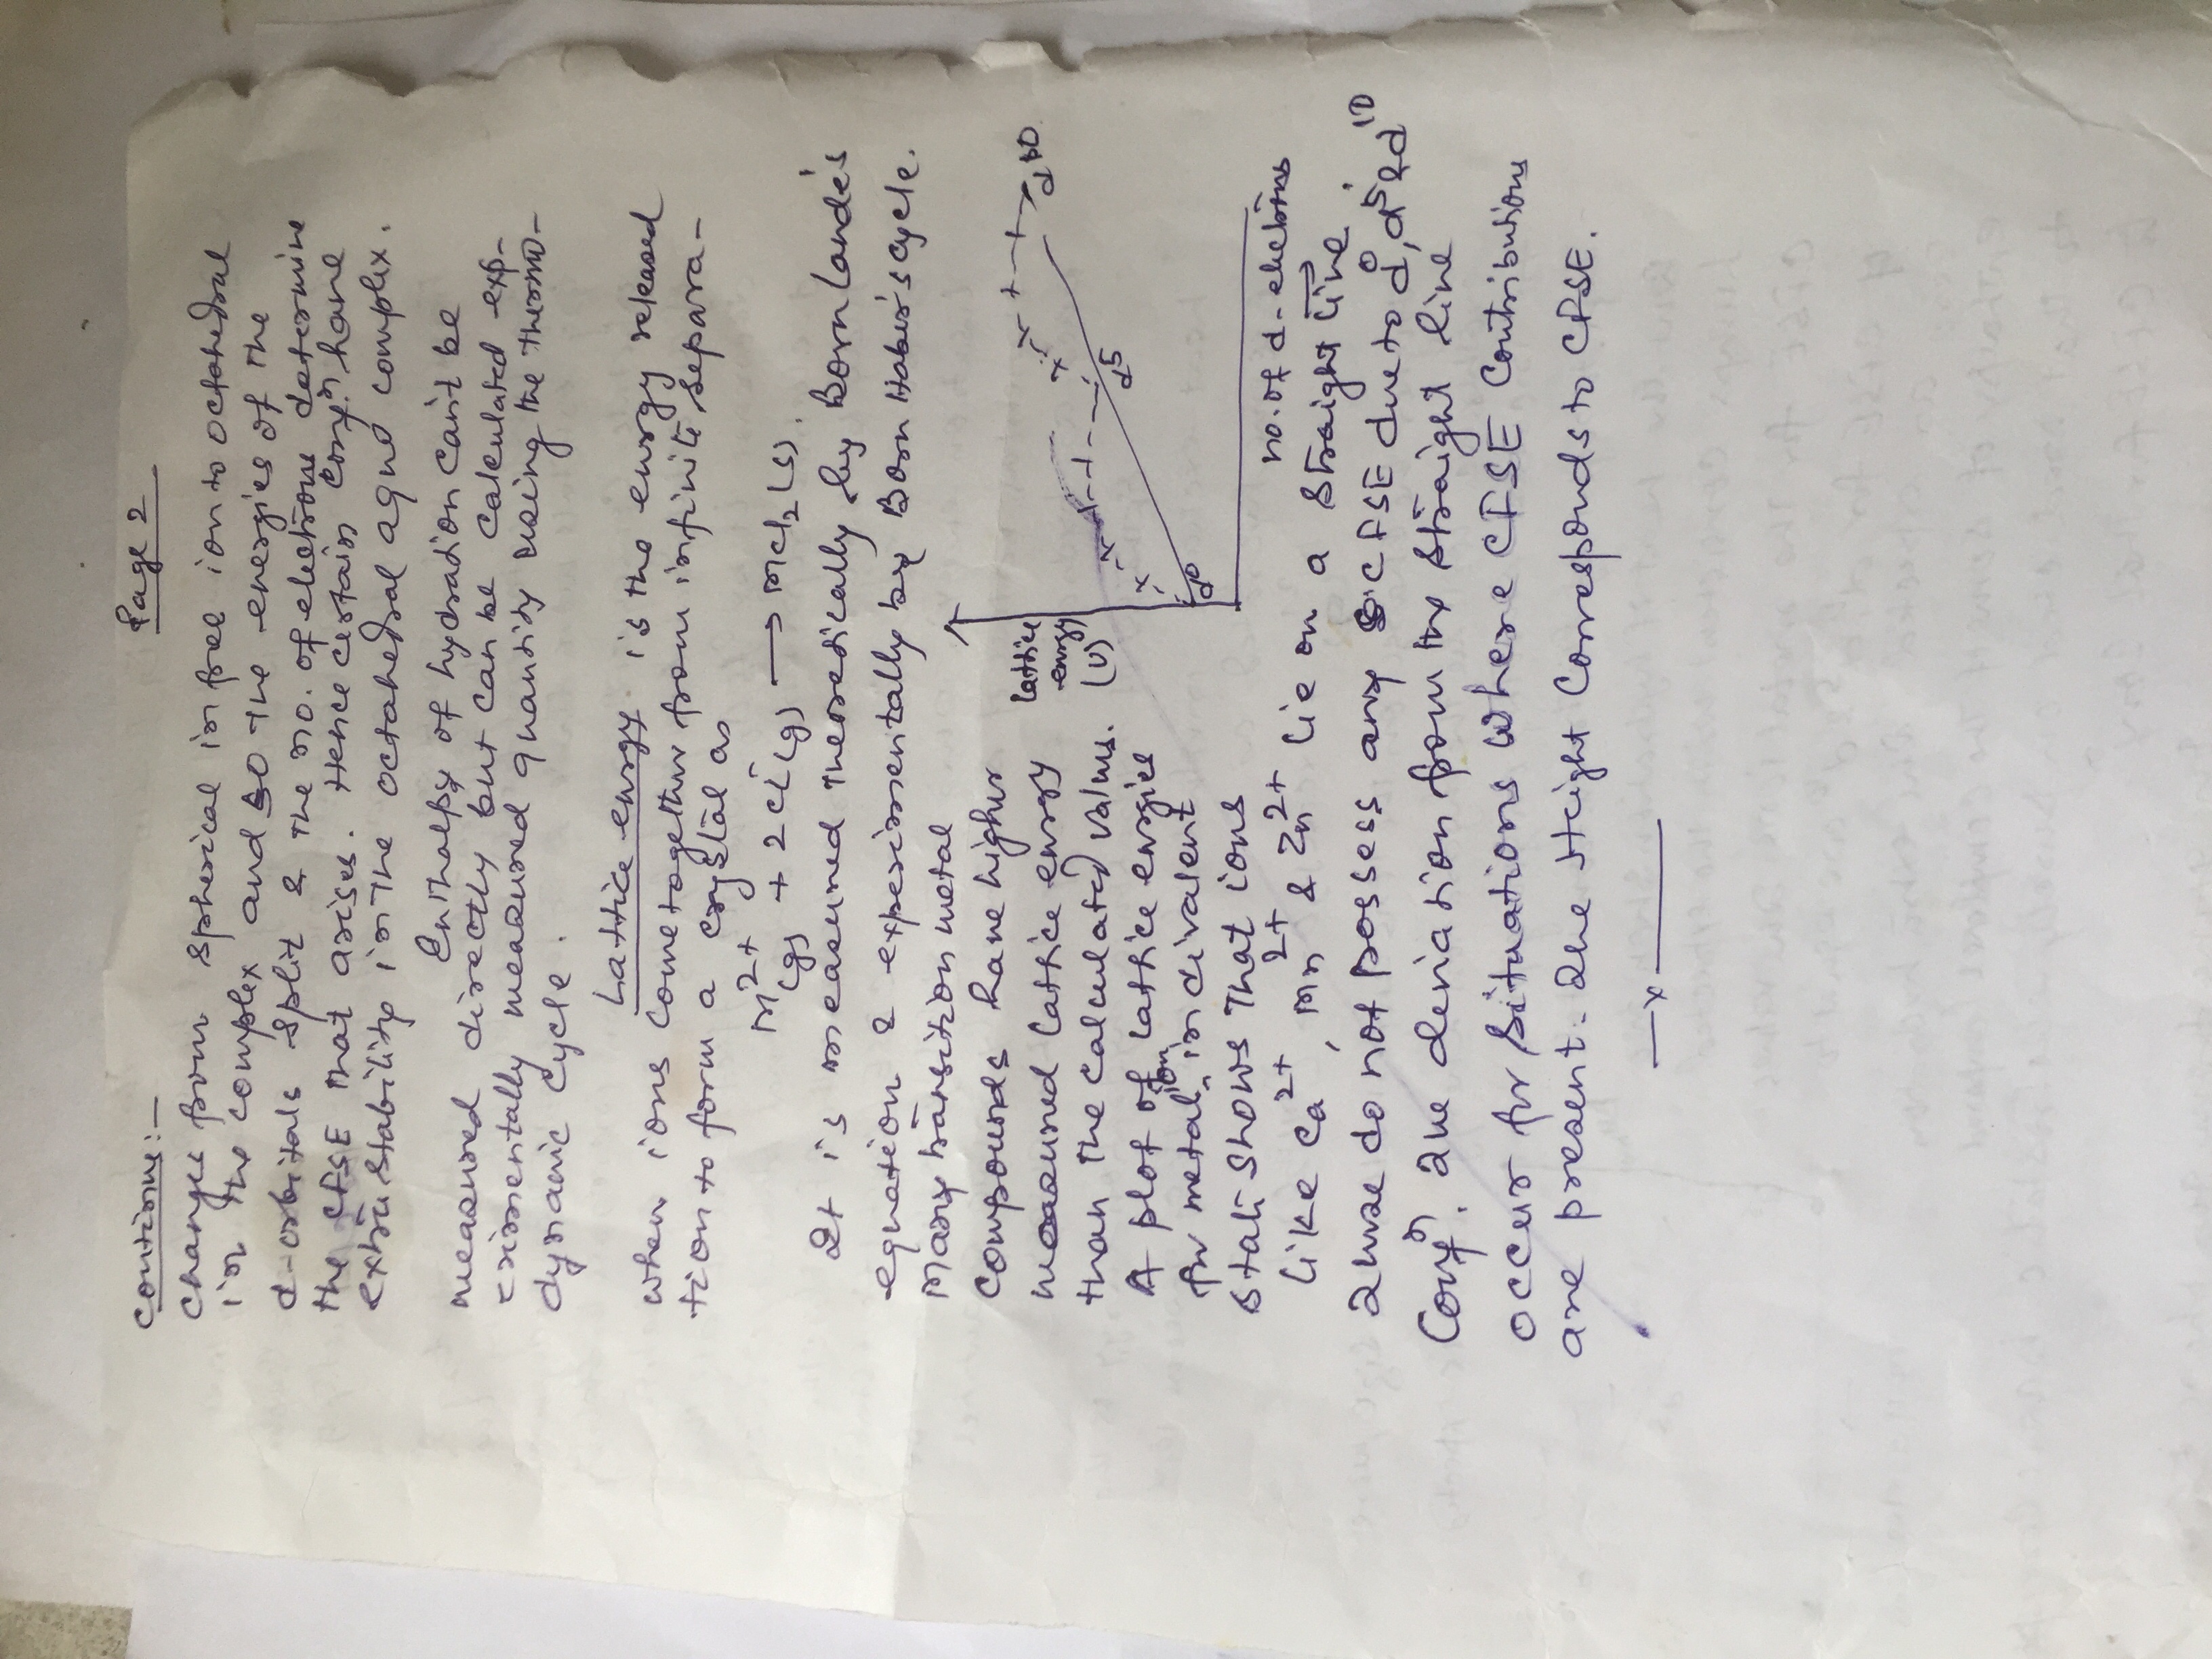 Page 2
Continue:-
changes from spherical in free ion to octahedral
in the complex and so the energies of the
d-orbitals split & the no. of electrons determine
the CFSE that arises. Hence certain conf.n have
extra stability in the octahedral aquo complex.
Enthalpy of hydration can't be
measured directly but can be calculated exp-
erimentally measured quantity using the thermo-
dynamic cycle.
Lattice energy is the energy released
when ions come together from infinite separa-
tion to form a crystal as
M2+(g) + 2Cl-(g) → MCl2(s).
It is measured theoretically by Born Lande's
equation & experimentally by Born Haber's cycle.
Many transition metal
compounds have higher
measured lattice energy
than the calculated values.
A plot of lattice energies
for metal ion in divalent
state shows that ions
like Ca2+, Mn2+ & Zn2+ lie on a straight line.
These do not possess any CFSE due to d0, d5 & d10
conf.n. The deviation from the straight line
occur for situations where CFSE contributions
are present. The height corresponds to CFSE.
—x—
lattice
energy
(U)
d0
d5
d10
no. of d-electrons